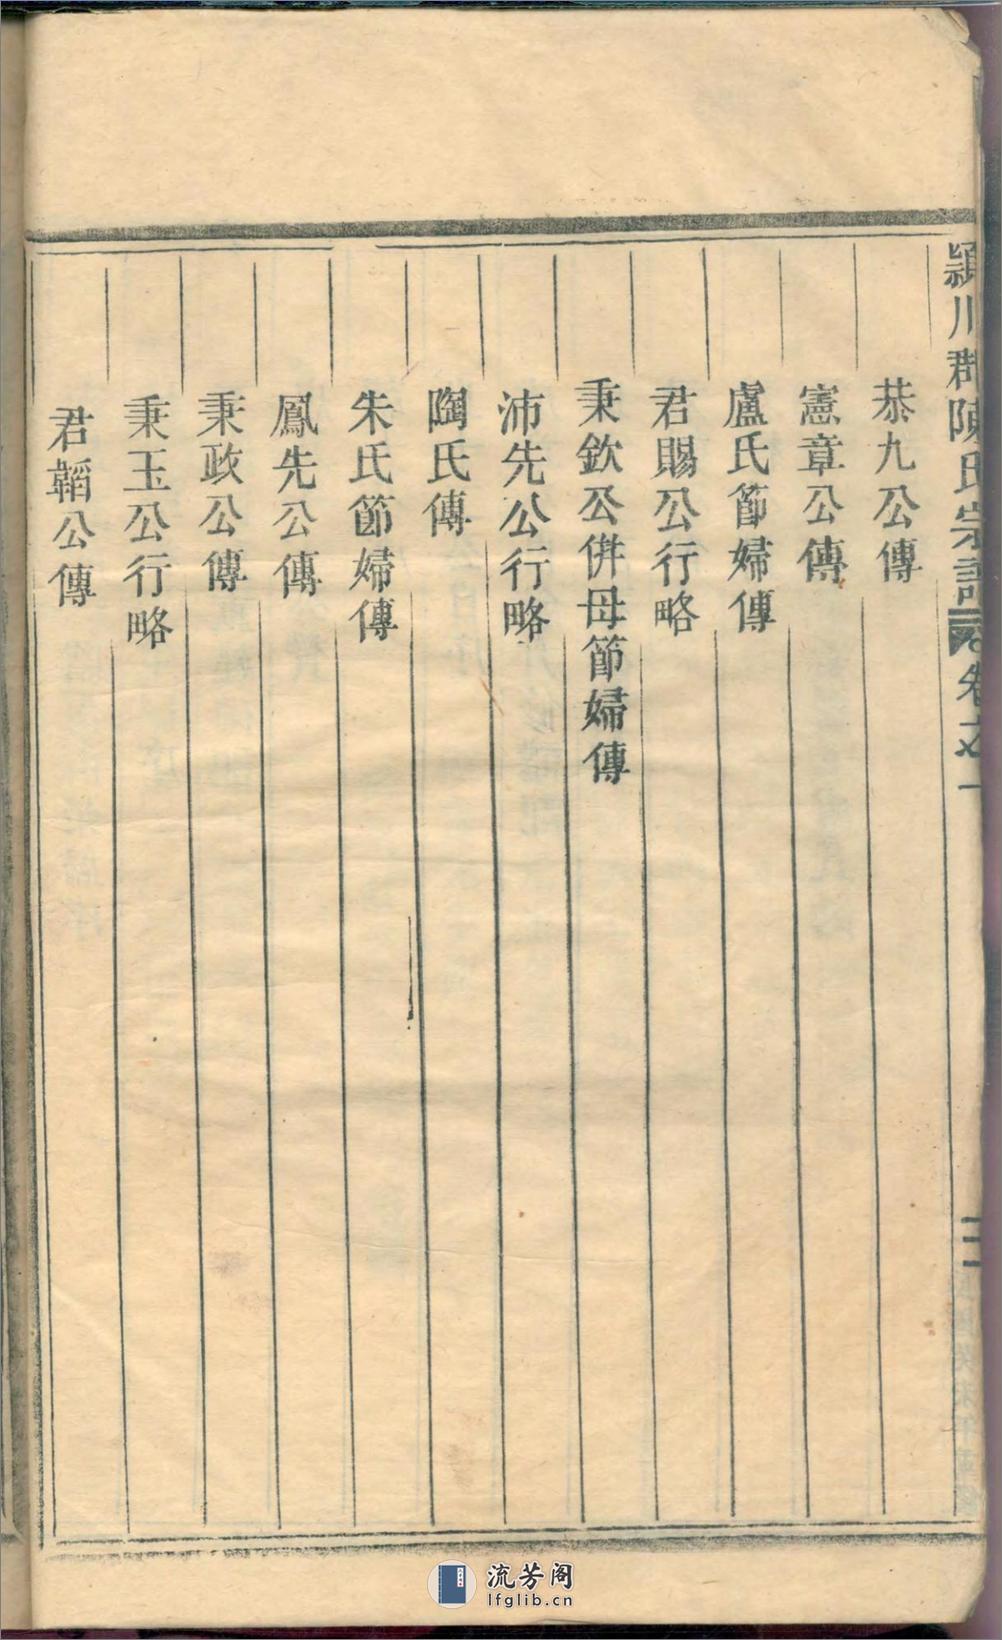 潁川郡陳氏宗譜 卷之一
恭九公傳
憲章公傳
盧氏節婦傳
君賜公行略
秉欽公併母節婦傳
沛先公行略
陶氏傳
朱氏節婦傳
鳳先公傳
秉政公傳
秉玉公行略
君韜公傳
流芳阁
lfglib.cn